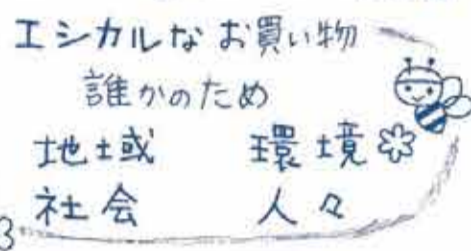 エシカルな お買い物
誰かのため
地域 環境
社会 人々